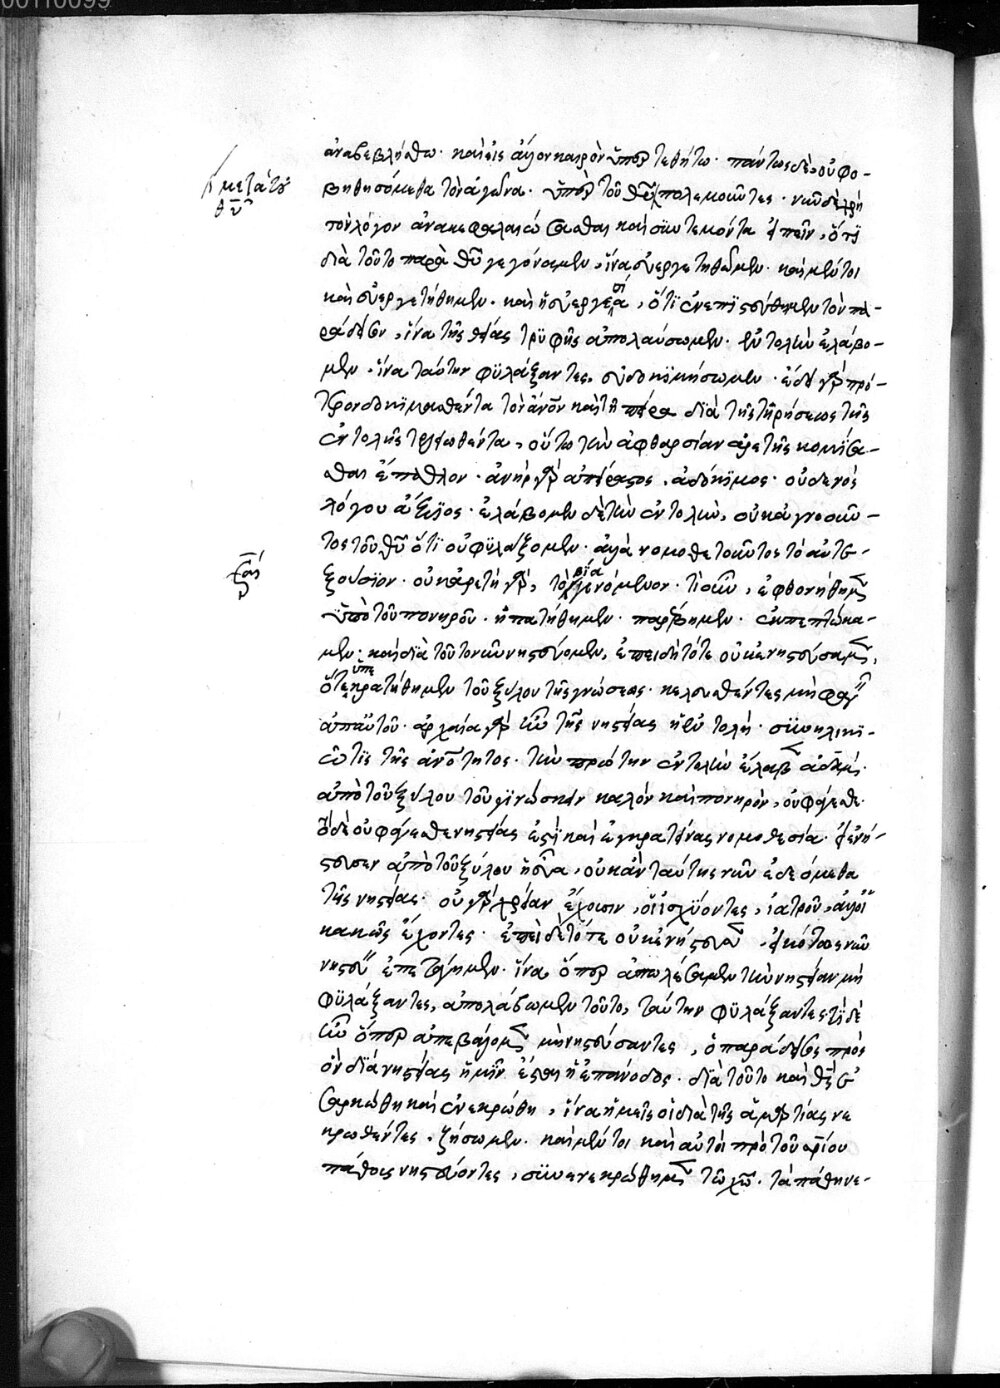 00110099
ἀναβεβλήσθω· καὶ εἰς ἄλλον καιρὸν ὑπερτεθήτω· πάντως δὲ οὐ φο-
βηθησόμεθα τὸν ἀγῶνα· ὑπὲρ τοῦ θυ πολεμοῦντες· νῦν δὲ χρὴ
μετὰ τοῦ
θυ
τὸν λόγον ἀνακεφαλαιώσασθαι καὶ συντεμόντα εἰπεῖν, ὅτι
διὰ τοῦτο παρὰ θυ γεγόναμεν, ἵνα εὐεργετηθῶμεν· καὶ μέντοι
καὶ εὐεργετήθημεν· καὶ ἡ εὐεργεσία, ὅτι ἐνεπιστεύθημεν τὸν πα-
ράδεισον, ἵνα τῆς θείας τρυφῆς ἀπολαύσωμεν· ἐντολὴν ἐλάβο-
μεν· ἵνα ταύτην φυλάξαντες, εὐδοκιμήσωμεν· ἔδει γὰρ πρό-
τερον δοκιμασθέντα τὸν ἄνον καὶ τῇ πείρα διὰ τῆς τηρήσεως τῆς
ἐντολῆς τελειωθέντα, οὕτω τὴν ἀφθαρσίαν ἀρετῆς κομίσα-
σθαι ἔπαθλον· ἀνὴρ γὰρ ἀπείραστος, ἀδόκιμος· οὐδενὸς
λόγου ἄξιος· ἐλάβομεν δὲ τὴν ἐντολὴν, οὐκ ἀγνοοῦν-
τος τοῦ θυ ὅτι οὐ φυλάξομεν· ἀλλὰ νομοθετοῦντος τὸ αὐτε-
ξούσιον· οὐκ ἀρετὴ γὰρ, τὸ βία γενόμενον· τί οὖν, ἐφθονήθημεν
ὑπὸ τοῦ πονηροῦ· ἠπατήθημεν· παρέβημεν· ἐκπεπτώκα-
μεν· καὶ διὰ τοῦτο νῦν νηστεύομεν, ἐπειδὴ τότε οὐκ ἐνηστεύσαμεν,
ὅτε ὑπεκρατήθημεν τοῦ ξύλου τῆς γνώσεως· κελευσθέντες μὴ φαγεῖν
ἀπ' αὐτοῦ· ἀρχαία γὰρ οὖν τῆς νηστείας ἡ ἐντολή· συνηλικι-
ῶτις τῆς ἀνοτητος· τὴν πρώτην ἐντολὴν ἔλαβεν ἀδὰμ·
ἀπὸ τοῦ ξύλου τοῦ γινώσκειν καλὸν καὶ πονηρὸν, οὐ φάγεσθε·
τὸ δὲ οὐ φάγεσθε νηστείας ἐστὶ καὶ ἐγκρατείας νομοθεσία· εἰ ἐνή-
στευσεν ἀπὸ τοῦ ξύλου ἡ εὔα, οὐκ ἂν ταύτης νῦν ἐδεόμεθα
τῆς νηστείας· οὐ γὰρ χρείαν ἔχουσιν, οἱ ἰσχύοντες, ἰατροῦ, ἀλλ' οἱ
κακῶς ἔχοντες· ἐπεὶ δὲ τότε οὐκ ἐνήστευσεν, εἰκότως νῦν
νηστεύειν ἐπετάγημεν· ἵνα ὅπερ ἀπωλέσαμεν τὴν νηστείαν μὴ
φυλάξαντες, ἀπολάβωμεν τοῦτο, ταύτην φυλάξαντες· τί δὲ
οὖν ὅπερ ἀπεβάλομεν μὴ νηστεύσαντες, ὁ παράδεισος πρὸς
ὃν διὰ νηστείας ἡμῖν ἔσται ἡ ἐπάνοδος· διὰ τοῦτο καὶ θς ἐ-
σαρκώθη καὶ ἐνεκρώθη, ἵνα ἡμεῖς οἱ διὰ τῆς ἁμαρτίας νε
κρωθέντες, ζήσωμεν· καὶ μέντοι καὶ αὐτοὶ πρὸ τοῦ ἁγίου
πάθους νηστεύοντες, συνενεκρώθημεν τῷ χω· τὰ πάθη νε-